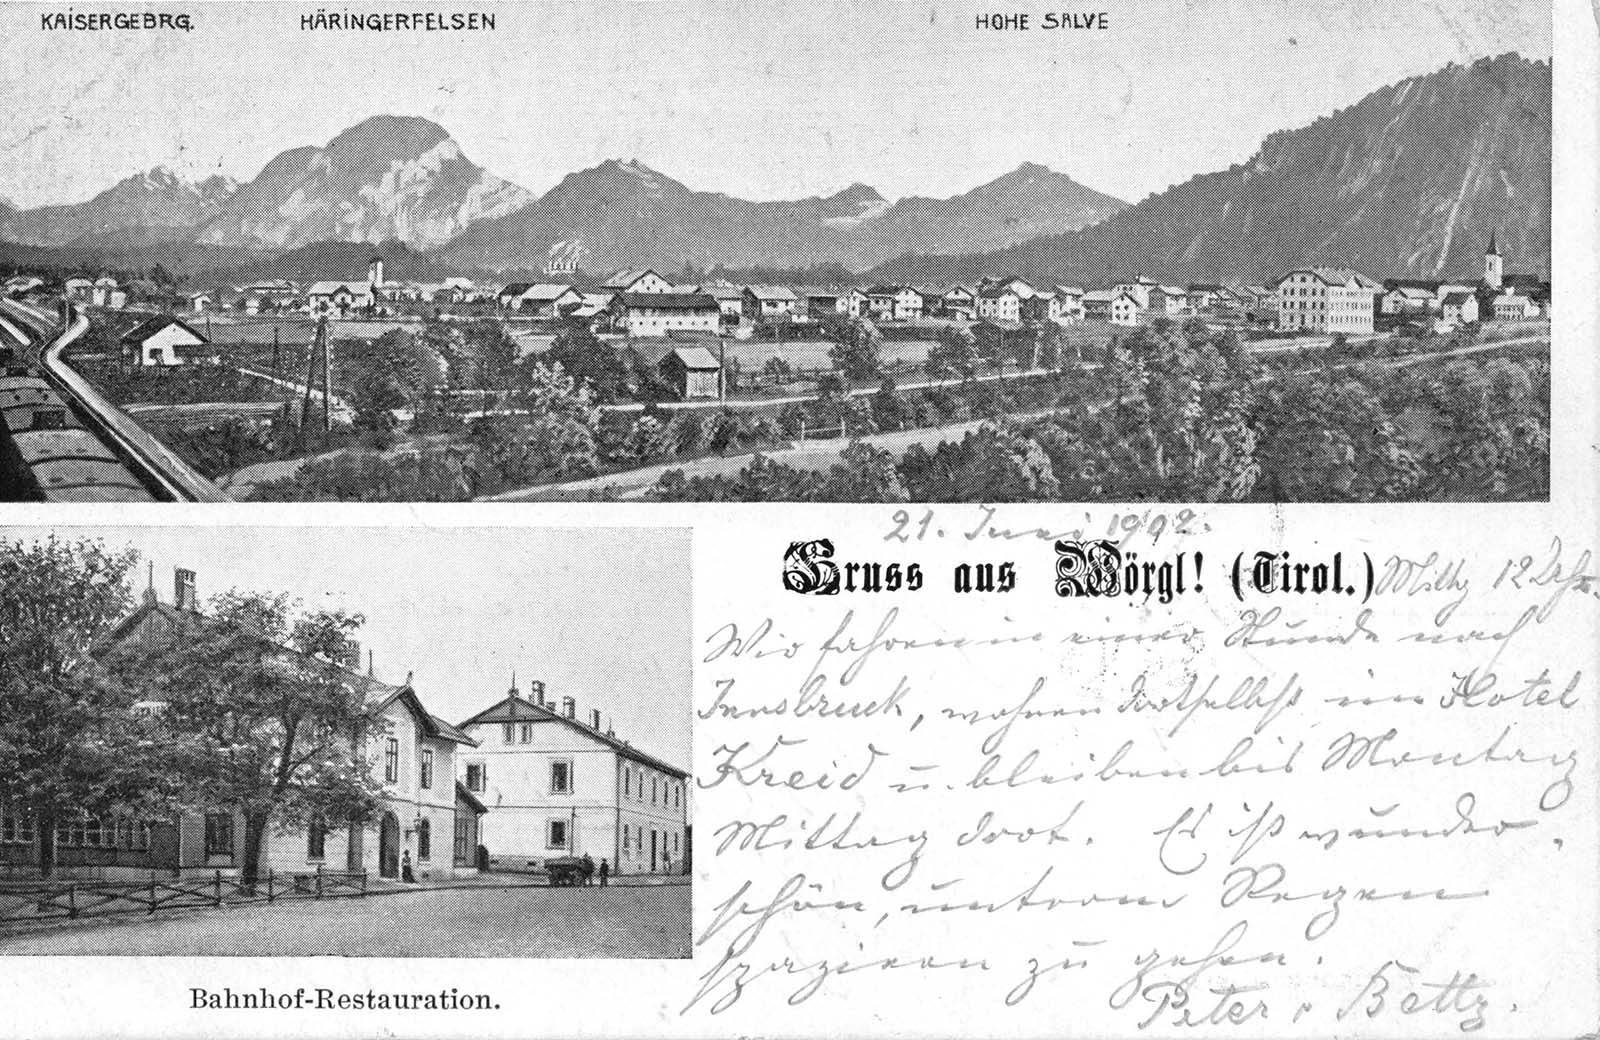 KAISERGEBRG. HÄRINGERFELSEN HOHE SALVE
21. Juni 1902.
Gruss aus Wörgl! (Tirol.) Mittg 12 Uhr.
Wir fahren in einer Stunde nach
Innsbruck, wohnen dortselbst im Hotel
Kreid u. bleiben bis Montag
Mittag dort. Es ist wunder-
schön, unterm Regen
spazieren zu gehen.
Peter u Betty.
Bahnhof-Restauration.